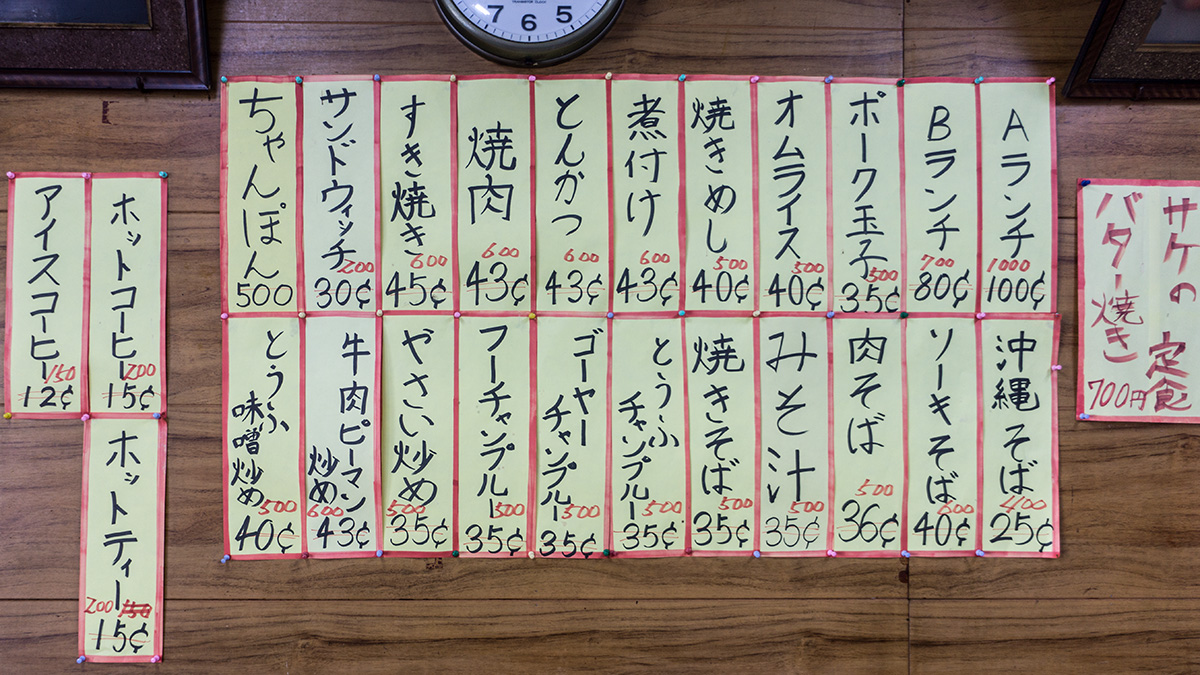 7 6 5
サケの定食
バター焼き
700円
Aランチ
1000
100¢
Bランチ
700
80¢
ポーク玉子
500
35¢
オムライス
500
40¢
焼きめし
500
40¢
煮付け
600
43¢
とんかつ
600
43¢
焼肉
600
43¢
すき焼き
600
45¢
サンドウィッチ
200
30¢
ちゃんぽん
500
沖縄そば
400
25¢
ソーキそば
600
40¢
肉そば
500
36¢
みそ汁
500
35¢
焼きそば
500
35¢
とうふ
チャンプルー
500
35¢
ゴーヤー
チャンプルー
500
35¢
フーチャンプルー
500
35¢
やさい炒め
500
35¢
牛肉ピーマン
炒め
600
43¢
とうふ
味噌炒め
500
40¢
ホットコーヒー
200
15¢
アイスコーヒー
150
12¢
ホットティー
200 150
15¢